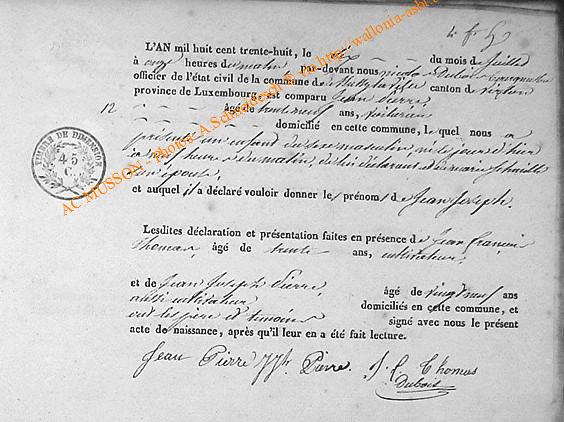 L'AN mil huit cent trente-huit, le dix du mois de juillet
à onze heures du matin par-devant nous nicolas Dubois
officier de l'état civil de la commune de canton de virton
province de Luxembourg, est comparu Jean Pierre
12
âgé de trente neuf ans, voiturier
domicilié en cette commune, lequel nous a
présenté un enfant du sexe masculin né le jour d'hier
à heures du matin, de lui déclarant et de marie
son épouse
et auquel il a déclaré vouloir donner les prénoms de Jean Joseph.
TIMBRE DE DIMENSION
45
C.
Lesdites déclaration et présentation faites en présence de Jean françois
Thomas, âgé de trente ans, cultivateur,
et de Jean Joseph Pierre, âgé de vingt neuf ans
aussi cultivateur domiciliés en cette commune, et
ont les père et témoins signé avec nous le présent
acte de naissance, après qu'il leur en a été fait lecture.
Jean Pierre JJh. Pierre. J. f. Thomas
Dubois
AC MUSSON - Photos: A.Schmadesch © via http://wallonia-asbl.